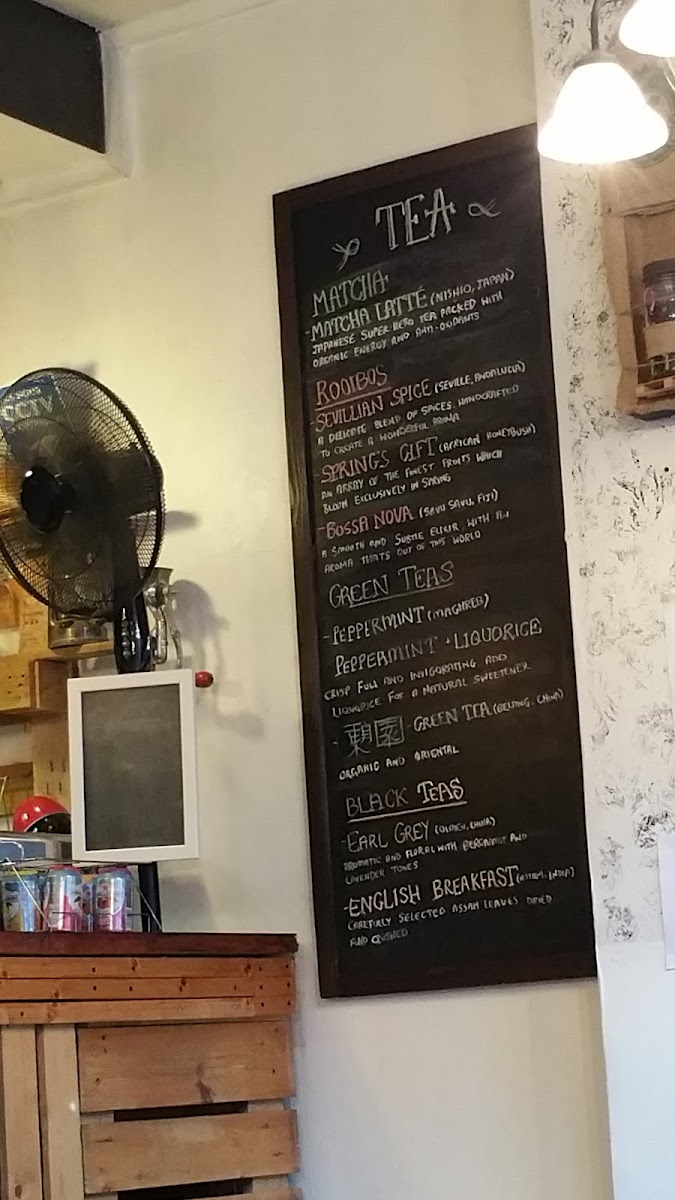 TEA
MATCHA
-MATCHA LATTÉ (NISHIO, JAPAN)
JAPANESE SUPER HERO TEA PACKED WITH
ORGANIC ENERGY AND ANTI-OXIDANTS
ROOIBOS
-SEVILLIAN SPICE (SEVILLE, ANDALUCIA)
A DELICATE BLEND OF SPICES, HANDCRAFTED
TO CREATE A WONDERFUL AROMA
-SPRING'S GIFT (AFRICAN HONEYBUSH)
AN ARRAY OF THE FINEST FRUITS WHICH
BLOOM EXCLUSIVELY IN SPRING
-BOSSA NOVA (SAVU SAVU, FIJI)
A SMOOTH AND SUBTLE ELIXIR WITH AN
AROMA THATS OUT OF THIS WORLD
GREEN TEAS
-PEPPERMINT (MAGHREB)
PEPPERMINT + LIQUORICE
CRISP FULL AND INVIGORATING AND
LIQUORICE FOR A NATURAL SWEETENER
- GREEN TEA (BEIJING, CHINA)
ORGANIC AND ORIENTAL
BLACK TEAS
-EARL GREY
AROMATIC AND FLORAL WITH BERGAMOT AND
LAVENDER TONES
-ENGLISH BREAKFAST (ASSAM, INDIA)
CAREFULLY SELECTED ASSAM LEAVES DRIED
AND CRUSHED
CCTV